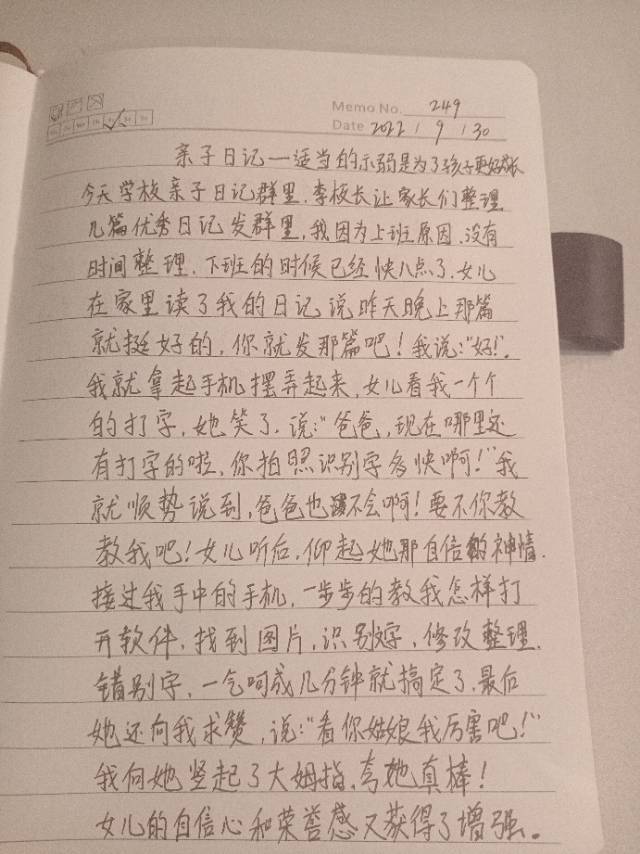 Memo No. 249
Date 2022 / 9 / 30
亲子日记—适当的示弱是为了孩子更好成长
今天学校亲子日记群里.李校长让家长们整理
几篇优秀日记发群里,我因为上班原因.没有
时间整理.下班的时候已经快八点了.女儿
在家里读了我的日记说昨天晚上那篇
就挺好的,你就发那篇吧!我说:“好!”.
我就拿起手机摆弄起来,女儿看我一个个
的打字,她笑了.说:“爸爸,现在哪里还
有打字的啦,你拍照识别字多快啊!”我
就顺势说到,爸爸也不会啊!要不你教
教我吧!女儿听后,仰起她那自信的神情.
接过我手中的手机,一步步的教我怎样打
开软件,找到图片,识别文字,修改整理.
错别字,一气呵成几分钟就搞定了.最后
她还向我求赞,说:“看你姑娘我厉害吧!”
我向她竖起了大姆指,夸她真棒!
女儿的自信心和荣誉感又获得了增强。